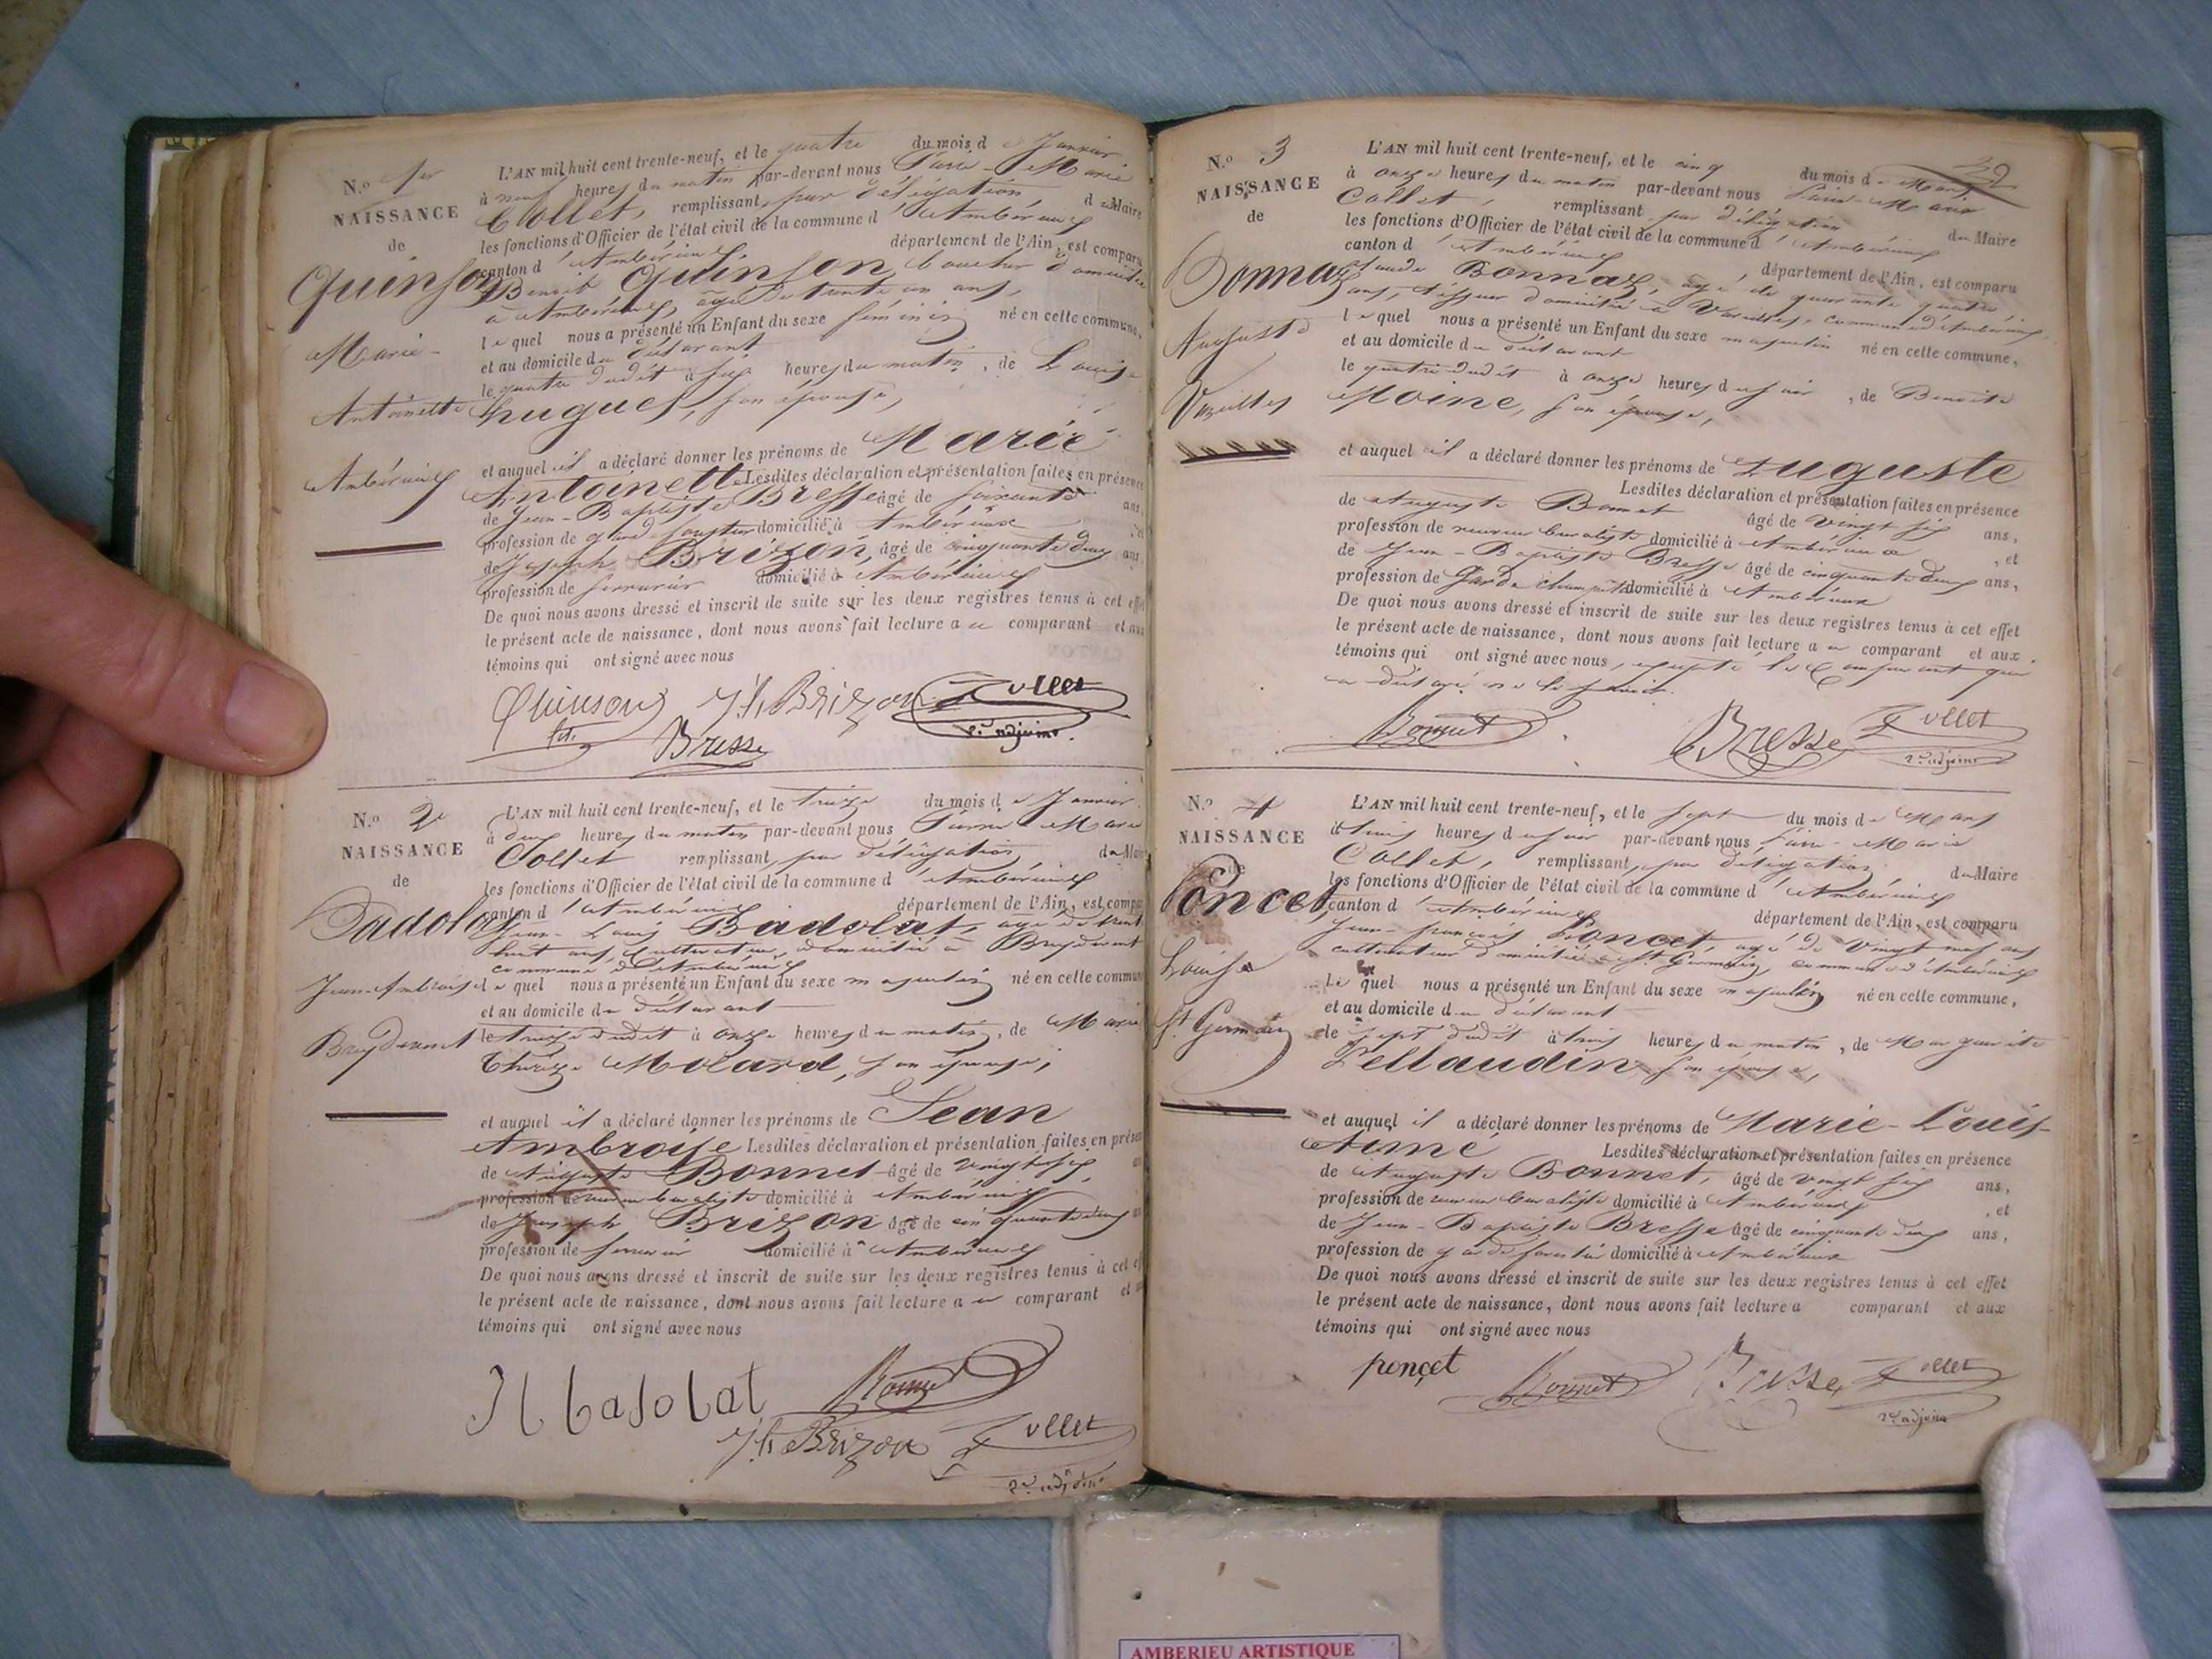 N.o 1er
NAISSANCE
de
Quinson
Marie
Antoinette
Ambérieux
L'AN mil huit cent trente-neuf, et le quatre du mois de Janvier
à neuf heures du matin par-devant nous Pierre-Marie
Collet, remplissant, par délégation du Maire
les fonctions d'Officier de l'état civil de la commune d'Ambérieux
canton d'Ambérieux département de l'Ain, est comparu
Benoit Quinson, boucher domicilié
à Ambérieux, âgé de trente un ans,
lequel nous a présenté un Enfant du sexe féminin né en cette commune,
et au domicile du déclarant
le quatre dudit à six heures du matin, de Louise
hugues, son épouse,
et auquel il a déclaré donner les prénoms de Marie
Antoinette Lesdites déclaration et présentation faites en présence
de Jean-Baptiste Bresse âgé de soixante ans,
profession de garde forestier domicilié à Ambérieux
de Joseph Brizon, âgé de cinquante deux ans,
profession de serrurier domicilié à Ambérieux
De quoi nous avons dressé et inscrit de suite sur les deux registres tenus à cet effet
le présent acte de naissance, dont nous avons fait lecture a ce comparant et aux
témoins qui ont signé avec nous
Quinson Jh Brizon Collet
Bresse 2e adjoint
N.o 2e
NAISSANCE
de
Badolat
Jean-Ambroise
Breydevent
L'AN mil huit cent trente-neuf, et le treize du mois de Janvier
à deux heures du matin par-devant nous Pierre Marie
Collet remplissant, par délégation du Maire
les fonctions d'Officier de l'état civil de la commune d'Ambérieux
canton d'Ambérieux département de l'Ain, est comparu
Jean-Louis Badolat, âgé de trente
huit ans, cultivateur, domicilié à Breydevent
commune d'Ambérieux
lequel nous a présenté un Enfant du sexe masculin né en cette commune
et au domicile du déclarant
le treize dudit à onze heures du matin, de Marie
Thérèze Molard, son épouse,
et auquel il a déclaré donner les prénoms de Jean
Ambroise Lesdites déclaration et présentation faites en présence
de Auguste Bonnet âgé de vingt six
profession de receveur buraliste domicilié à Ambérieux
de Joseph Brizon âgé de cinquante deux
profession de serrurier domicilié à Ambérieux
De quoi nous avons dressé et inscrit de suite sur les deux registres tenus à cet effet
le présent acte de naissance, dont nous avons fait lecture a ce comparant et
témoins qui ont signé avec nous
Jl badolat Bonnet
Jh Brizon Collet
2e adjoint
N.o 3
NAISSANCE
de
Bonnaz
Auguste
Vareilles
L'AN mil huit cent trente-neuf, et le cinq du mois de Mars
à onze heures du matin par-devant nous Pierre-Marie
Collet, remplissant par délégation du Maire
les fonctions d'Officier de l'état civil de la commune d'Ambérieux
canton d'Ambérieux, département de l'Ain, est comparu
Claude Bonnaz, âgé de quarante quatre
ans, tisseur domicilié à Vareilles, commune d'Ambérieux
lequel nous a présenté un Enfant du sexe masculin né en cette commune,
et au domicile du déclarant
le quatre dudit à onze heures du soir, de Benoite
Moine, son épouse,
et auquel il a déclaré donner les prénoms de Auguste
Lesdites déclaration et présentation faites en présence
de Auguste Bonnet âgé de vingt six ans,
profession de receveur buraliste domicilié à Ambérieux, et
de Jean-Baptiste Bresse âgé de cinquante deux ans,
profession de Garde champêtre domicilié à Ambérieux
De quoi nous avons dressé et inscrit de suite sur les deux registres tenus à cet effet
le présent acte de naissance, dont nous avons fait lecture a ce comparant et aux
témoins qui ont signé avec nous, excepté le Comparant qui
a déclaré ne le savoir.
Bonnet Bresse Collet
2e adjoint
N.o 4
NAISSANCE
de
Poncet
Louis
St Germain
L'AN mil huit cent trente-neuf, et le sept du mois de Mars
à trois heures du soir par-devant nous Pierre-Marie
Collet, remplissant, par délégation du Maire
les fonctions d'Officier de l'état civil de la commune d'Ambérieux
canton d'Ambérieux département de l'Ain, est comparu
Jean-françois Poncet, âgé de vingt neuf ans
cultivateur domicilié à St Germain, commune d'Ambérieux
Lequel nous a présenté un Enfant du sexe masculin né en cette commune,
et au domicile du déclarant
le sept dudit à trois heures du matin, de Marguerite
Pellaudin, son épouse,
et auquel il a déclaré donner les prénoms de Marie-Louis-
Aimé Lesdites déclaration et présentation faites en présence
de Auguste Bonnet, âgé de vingt six ans,
profession de receveur buraliste domicilié à Ambérieux, et
de Jean-Baptiste Bresse âgé de cinquante deux ans,
profession de garde forestier domicilié à Ambérieux
De quoi nous avons dressé et inscrit de suite sur les deux registres tenus à cet effet
le présent acte de naissance, dont nous avons fait lecture a comparant et aux
témoins qui ont signé avec nous
ponçet Bonnet Bresse Collet
2e adjoint
AMBERIEU ARTISTIQUE